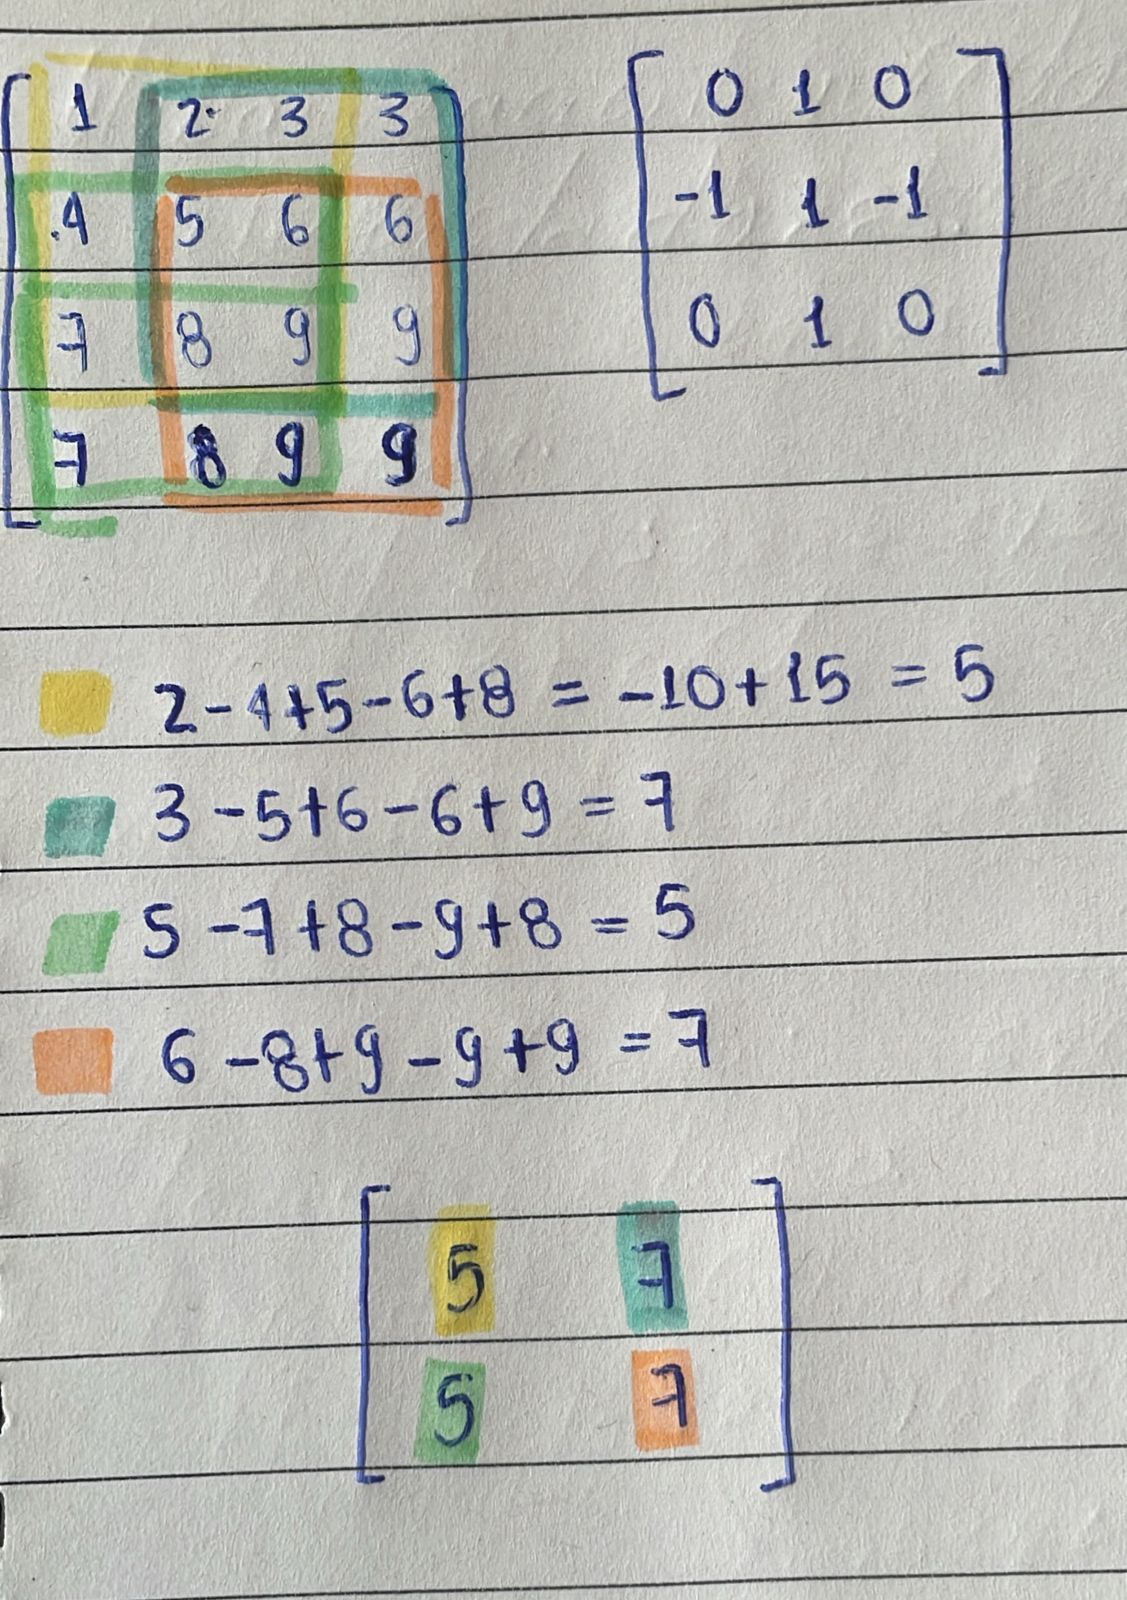 1 2 3 3
4 5 6 6
7 8 9 9
7 8 9 9
0 1 0
-1 1 -1
0 1 0
2-4+5-6+8 = -10+15 = 5
3-5+6-6+9 = 7
5-7+8-9+8 = 5
6-8+9-9+9 = 7
5 7
5 7